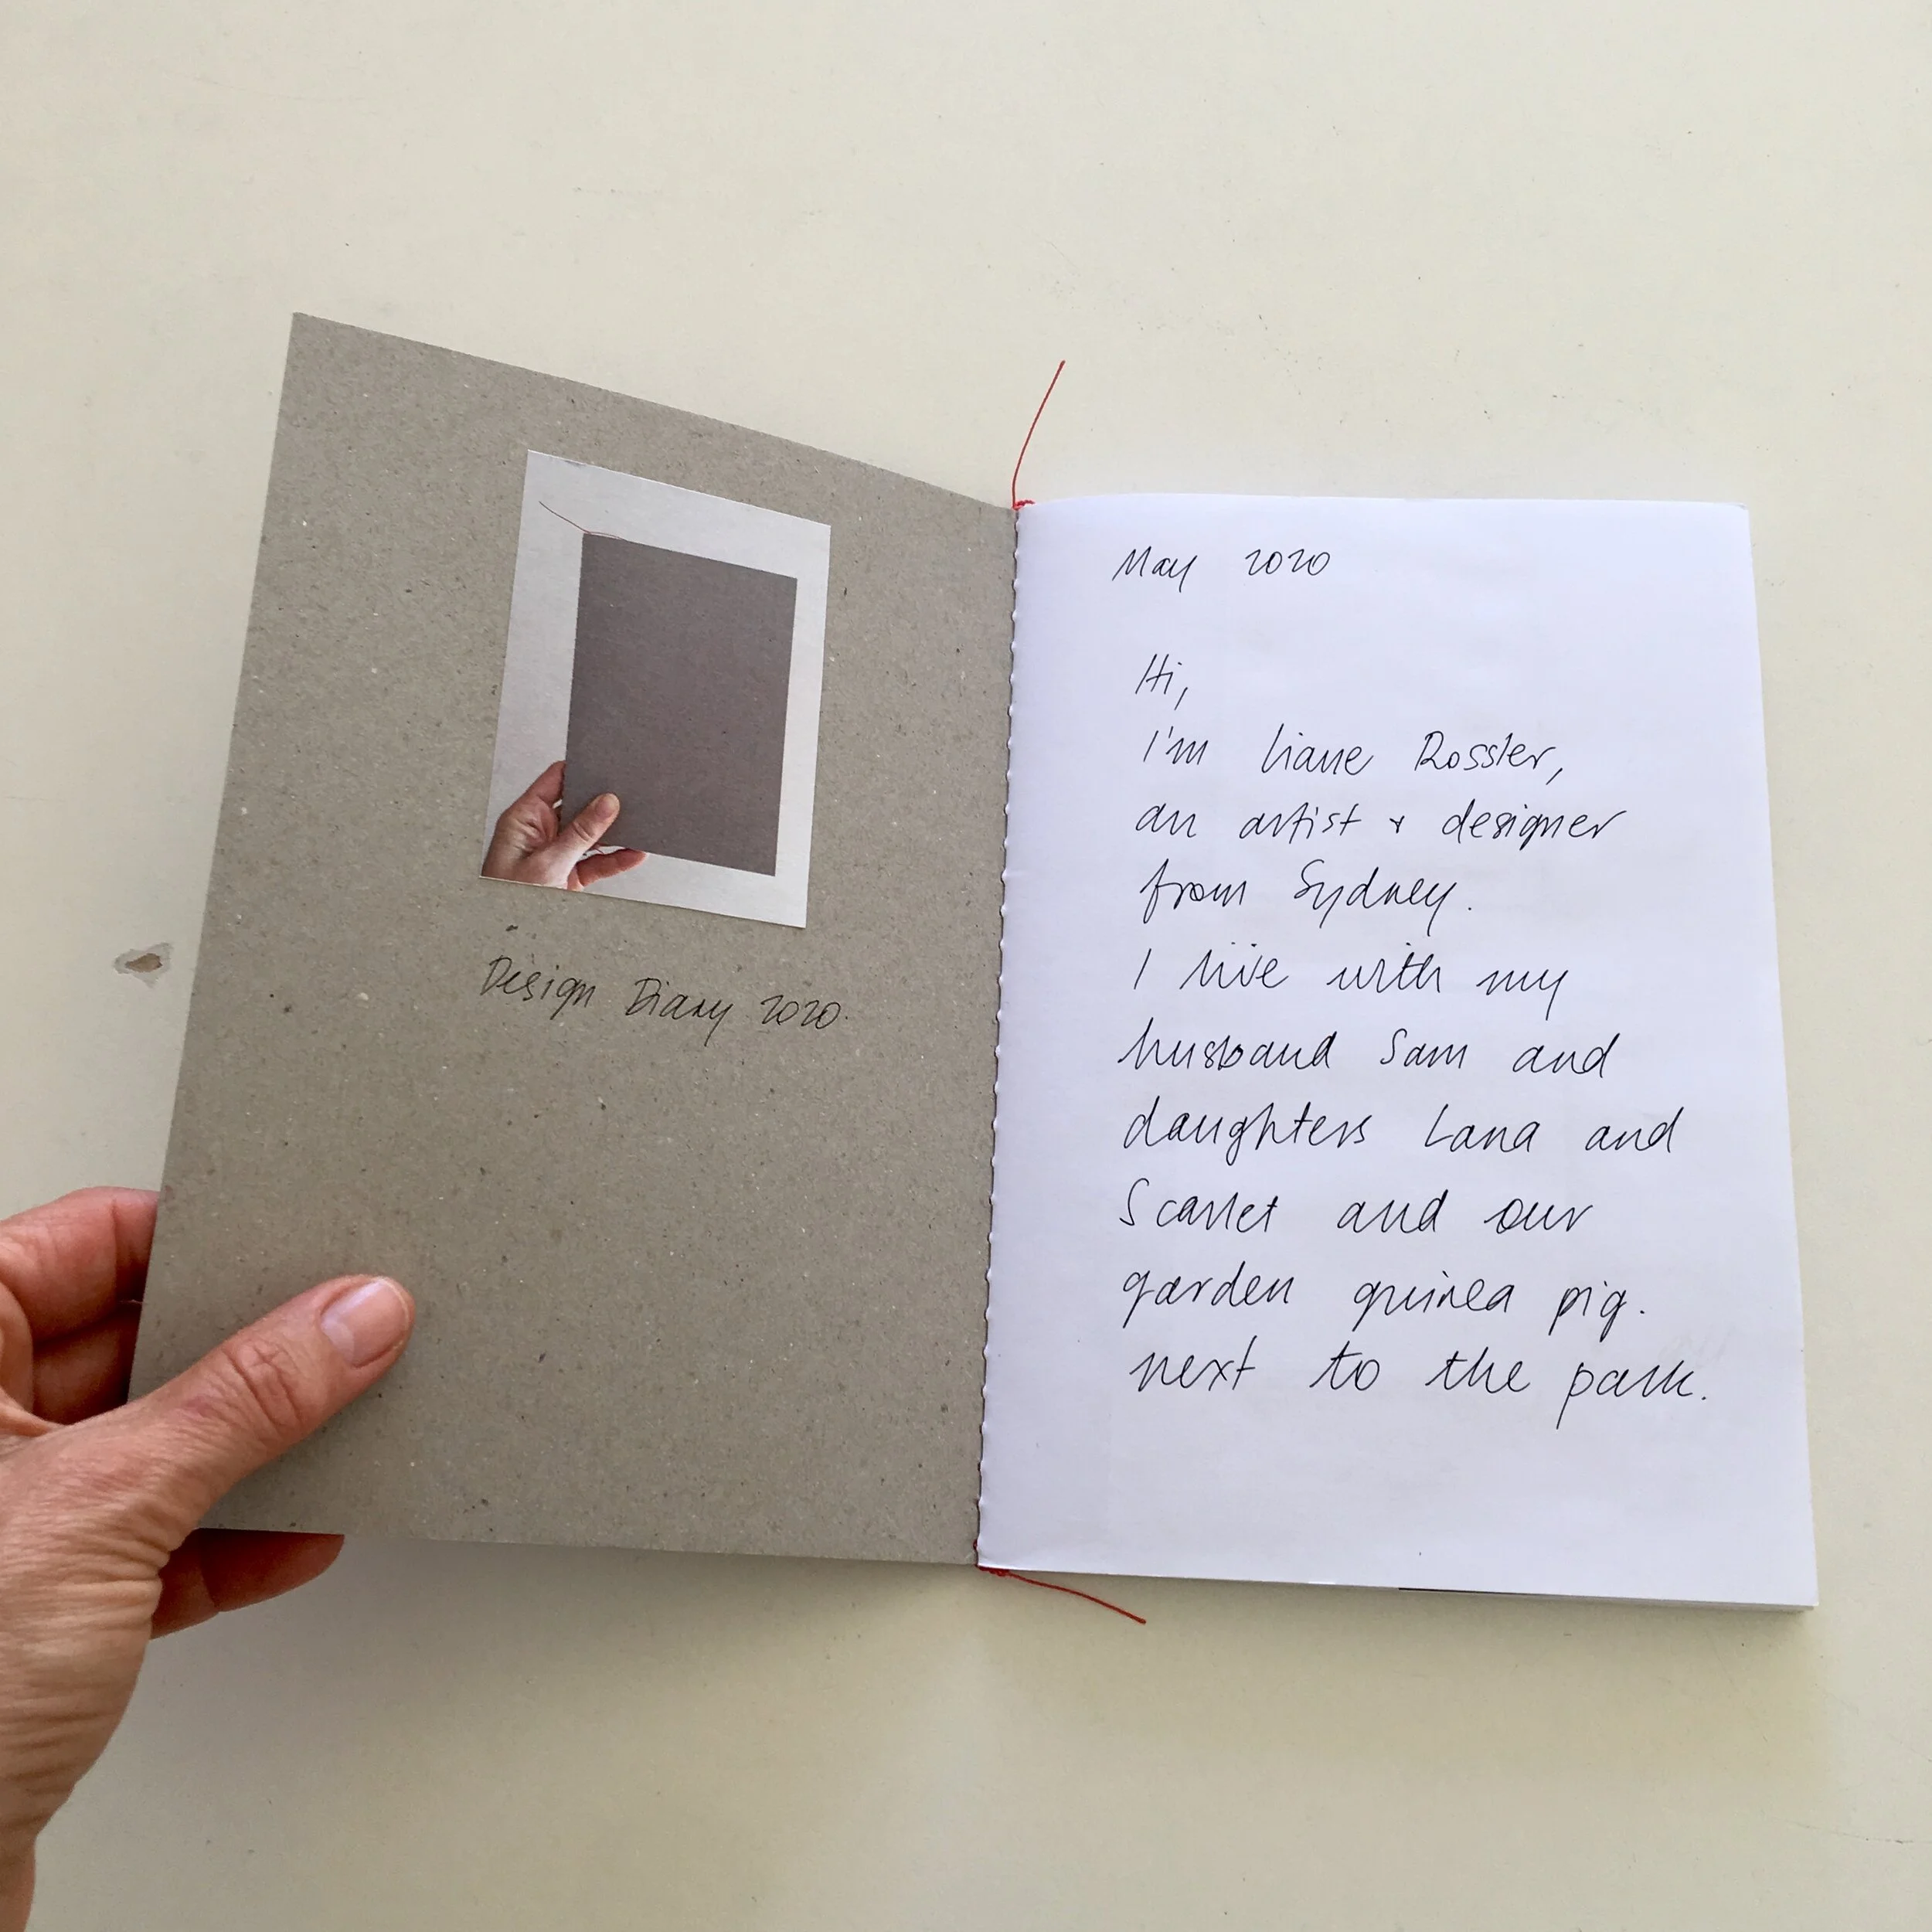 Design Diary 2020.
May 2020
Hi,
I'm Liane Rossler,
an artist + designer
from Sydney.
I live with my
husband Sam and
daughters Lana and
Scarlet and our
garden guinea pig.
next to the park.